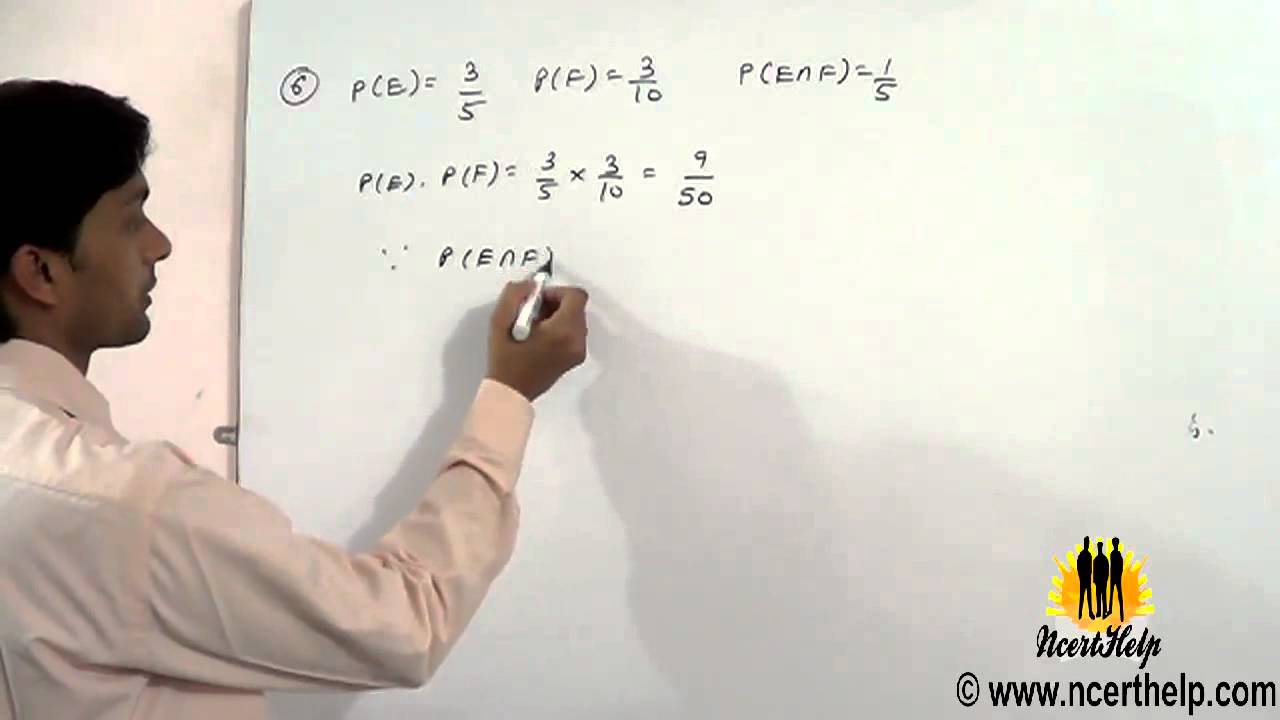 ⑥ P(E) = 3/5 P(F) = 3/10 P(E∩F) = 1/5
P(E). P(F) = 3/5 × 3/10 = 9/50
∵ P(E∩F)
NcertHelp
© www.ncerthelp.com